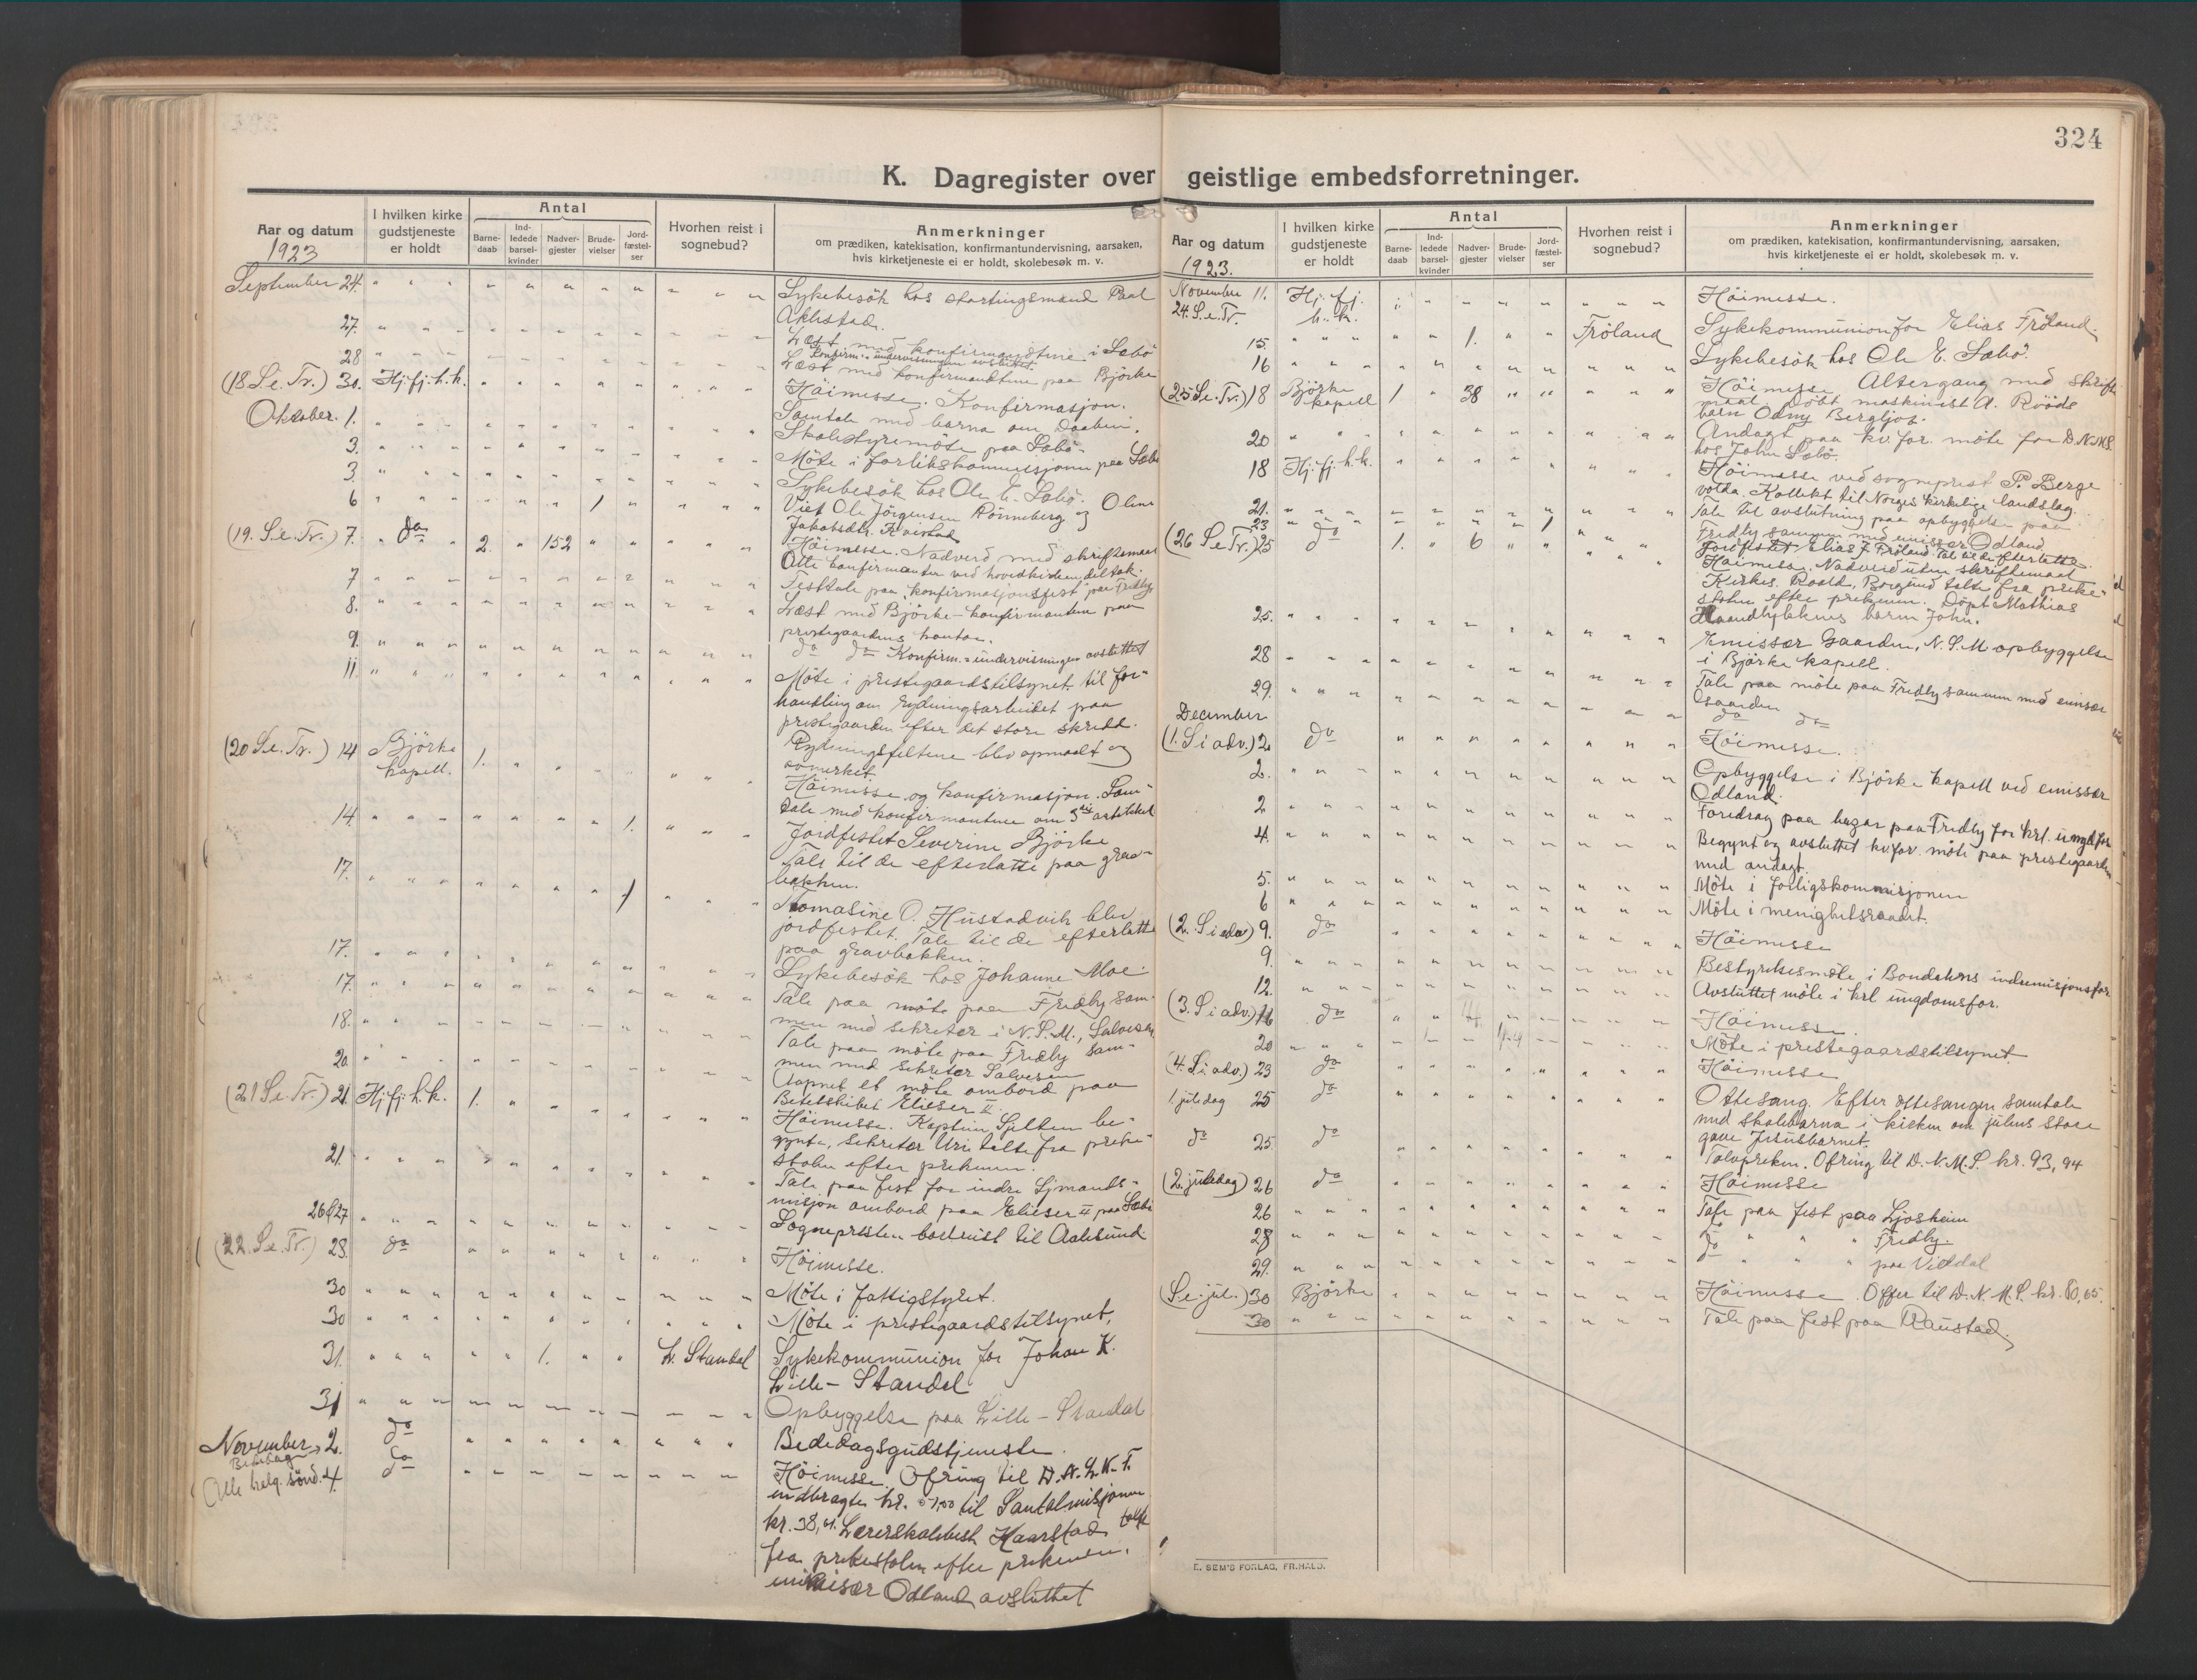 324
K. Dagregister over geistlige embedsforretninger.
Aar og datum
1923
I hvilken kirke gudstjeneste er holdt
Antal
Barne-daab
Ind-ledede barsel-kvinder
Nadver-gjester
Brude-vielser
Jord-fæstel-ser
Hvorhen reist i sognebud?
Anmerkninger
om prædiken, katekisation, konfirmantundervisning, aarsaken,
hvis kirketjeneste ei er holdt, skolebesøk m. v.
September 24. " " " " " " " " " " " Sykebesök hos stortingsmand Paal
Aklestad.
27. " " " Læst med konfirmantene i Sæbö
Konfirm.=undervisningen avsluttet.
28 " " " Læst med konfirmantene paa Björke
(18 S. e. Tr.) 30. Hj.fj. h.k. Höimesse. Konfirmasjon.
Samtale med barna om Daaben.
Oktober. 1. Skolestyremöte paa Sæbö
3. Möte i forlikskommissjonen paa Sæbö
3. Sykebesök hos Ole E. Sæbö.
6 1 Viet Ole Jörgensen Rönneberg og Oline
Jakobsdtr. Kvistad
(19. S. e. Tr.) 7. do 2. " 152 Höimesse. Nadverd med skriftemaal
Otte konfirmanter ved hovedkirken deltok.
7 Festtale paa konfirmasjonsfest paa Fredly
8. Læst med Björke-konfirmantene paa
prestegaardens kontor.
9. do do Konfirm.=undervisningen avsluttet
11 Möte i prestegaardstilsynet til for=
handling om rydningsarbeidet paa
prestegaarden efter det store skredd.
Rydningsfeltene blev opmaalt og
avmerket.
(20 S. e. Tr.) 14 Björke kapell. 1. Höimesse og konfirmasjon. Sam=
tale med konfirmantene om 3die artikkel
14. 1. Jordfestet Severine Björke
Tale til de efterlatte paa grav=
bakken.
17. 1 Tomasine O. Hustadvik blev
jordfestet. Tale til de efterlatte
paa gravbakken.
17. Sykebesök hos Johanne Moe.
17. Tale paa möte paa Fredly sam=
men med sekretær i N.S.M., Salvesen
18. Tale paa möte paa Fredly sam=
men med sekretær Salvesen
20. Aapnet et möte ombord paa
Betelskibet Elieser II.
(21 S. e. Tr.) 21. Hj.fj. h.k. 1. Höimesse. Kaptein Syltern be=
gynte, sekretær Uri talte fra preke=
stolen efter prekenen.
21. Tale paa fest for indre Sjömands=
misjon ombord paa Elieser II paa Sæbö
26&27 Sognepresten bortreist til Aalesund
(22. S. e. Tr.) 28. do Höimesse.
30 Möte i fattigstyret.
30 Möte i prestegaardstilsynet,
31. 1. L. Standal Sykekommunion for Johan K.
Lille-Standal
31 Opbyggelse paa Lille-Standal
November 2. do Bededagsgudstjeneste.
Bededag
Alle helg. sönd. 4. do Höimesse. Ofring til D.N.L.K.F.
indbragte kr. til Santalmisjonen
kr. 38, Lærerskolebest. Haarstad talte
fra prekestolen efter prekenen.
emissær Odland avsluttet
Aar og datum
1923.
I hvilken kirke gudstjeneste er holdt
Antal
Barne-daab
Ind-ledede barsel-kvinder
Nadver-gjester
Brude-vielser
Jord-fæstel-ser
Hvorhen reist i sognebud?
Anmerkninger
om prædiken, katekisation, konfirmantundervisning, aarsaken,
hvis kirketjeneste ei er holdt, skolebesøk m. v.
November 11. Hj. fj. Höimesse.
24. S. e. Tr. h. k.
15. 1. Fröland Sykekommunion for Elias Fröland.
16 Sykebesök hos Ole E. Sæbö.
(25 S. e. Tr.) 18 Björke kapell 1 " 38 Höimesse Altergang med skrifte
maal. Döbt maskinist A. Rööds
barn Odny Bergljot.
20 Andagt paa kv.for. möte for D.N.M.S.
hos John Sæbö.
18 Hj. fj. h.k. Höimesse ved sogneprest P. Berge
Volda. Kollekt til Norges kirkelige landslag.
21. Tale til avslutning paa opbyggelse paa
Fredly sammen med emissær Odland
23 1 Jordfestet Elias J. Fröland. Tale til de efterlatte.
(26 S. e. Tr.) 25 do 1. " 6 Höimesse. Nadverd uten skriftemaal
Kirkes. Roald, Borgund talte fra preke=
stolen efter prekenen. Döpt Mathias
barn John.
25. Emissær Gaarden, N.S.M. opbyggelse
i Björke kapell.
28 Tale paa möte paa Fredly sammen med emissær
Gaarden
29. do do
December
(1. S i adv.) 2. do Höimesse.
2. Opbyggelse i Björke kapell ved emissær
Odland.
2 Foredrag paa basar paa Fredly for krl. ungd.for
4. Begynt og avsluttet kv.for. möte paa prestegaarden
med andagt.
5. Möte i forligskommisjonen
6 Möte i menighetsraadet.
(2. S i adv) 9. do Höimesse
9. Bestyrelsesmöte i Bondalens indremisjonsfor
12. Avsluttet möte i krl. ungdomsfor.
(3. S i adv.) 16 do Höimesse.
20 Möte i prestegaardstilsynet
(4. S. i adv.) 23 do Höimesse
1. juledag 25 do Ottesang. Efter ottesangen samtale
med skolebarna i kirken om julens store
gave Jesusbarnet.
do 25. do Toloprekn. Ofring til D.N.M.S. kr. 93, 94
(2. juledag) 26 do Höimesse
26 Tale paa fest paa Ljosheim
28 do " " " Fredly.
29. do " " " paa Viddal
(S. e. jul.) 30 Björke Höimesse. Offer til D.N.M.S. kr. 65.
30 Tale paa fest paa Raustad.
E. SEM'S FORLAG, FR.HALD.